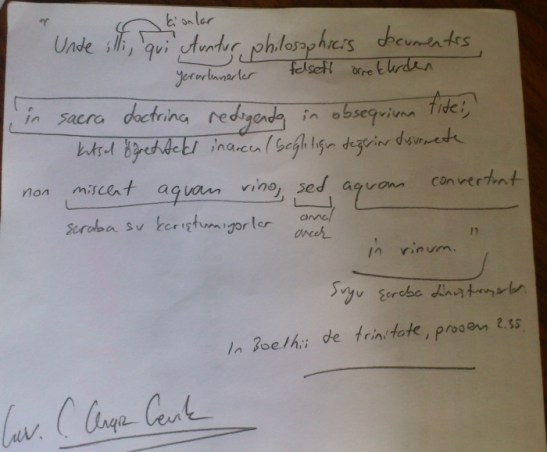 ki onlar
" Unde illi, qui utuntur philosophicis documentis
yararlanırlar felsefi örneklerden
in sacra doctrina redigendo in obsequium fidei,
kutsal öğretideki inancın/bağlılığın
non miscent aquam vino, sed aquam convertunt
şaraba su karıştırmıyorlar ama/
ancak
in vinum."
Suyu şaraba dönüştürüyorlar.
In Boethii de trinitate, prooem 2.35.